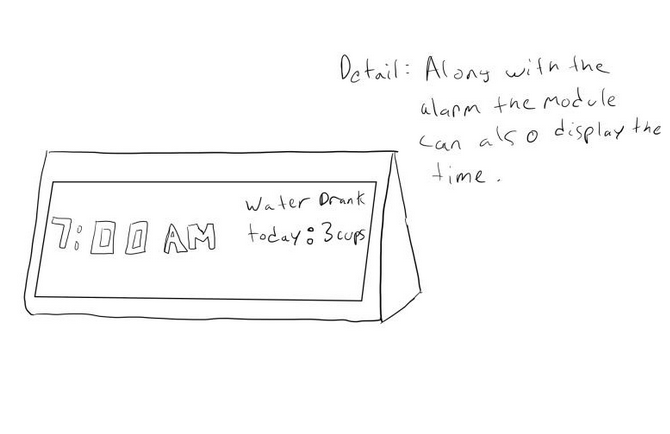 Detail: Along with the
alarm the module
can also display the
time.
Water Drank
7:00 AM
today: 3 cups